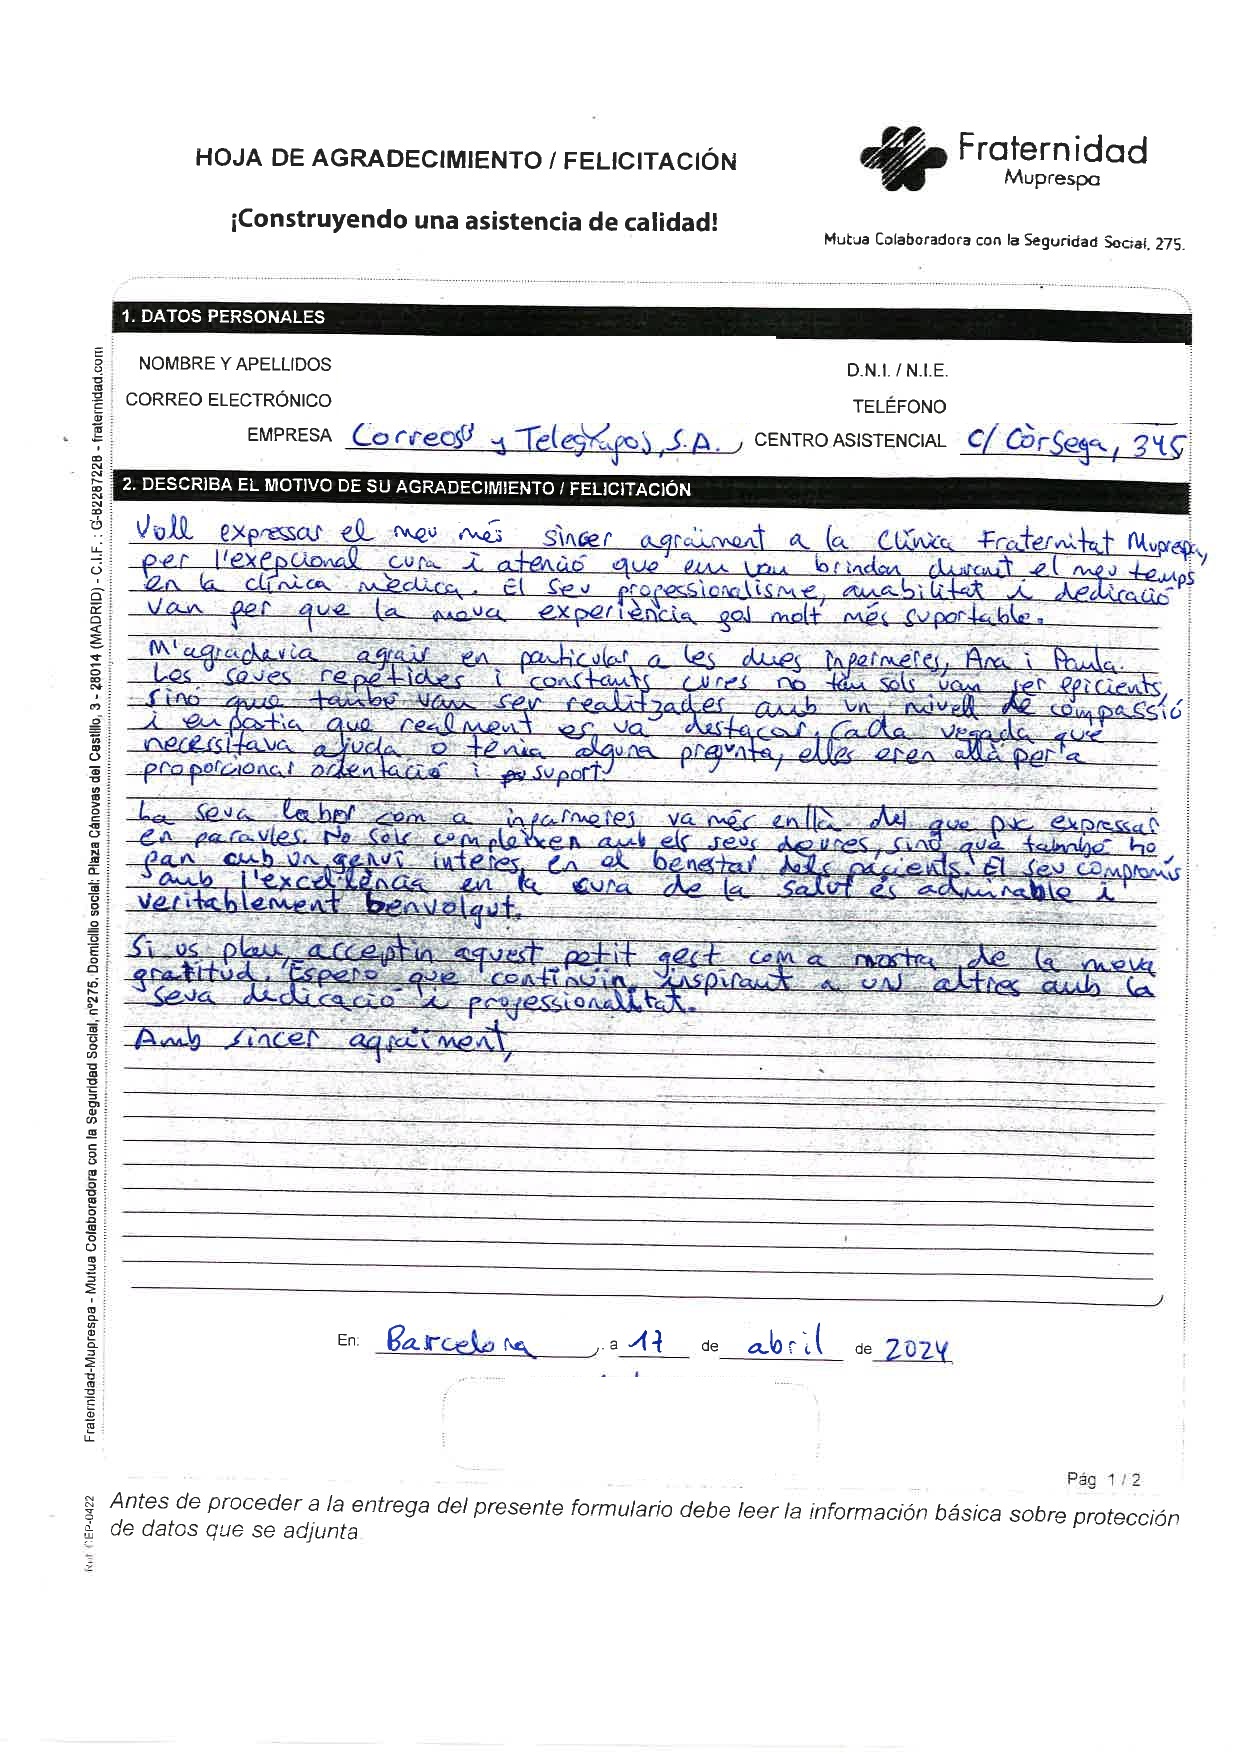 HOJA DE AGRADECIMIENTO / FELICITACIÓN
¡Construyendo una asistencia de calidad!
Fraternidad
Muprespa
Mutua Colaboradora con la Seguridad Social, 275.
1. DATOS PERSONALES
NOMBRE Y APELLIDOS
D.N.I. / N.I.E.
CORREO ELECTRÓNICO
TELÉFONO
EMPRESA Correos y Telégrafos, S.A. CENTRO ASISTENCIAL C/ Còrsega, 345
2. DESCRIBA EL MOTIVO DE SU AGRADECIMIENTO / FELICITACIÓN
Voll expressar el meu més sincer agraïment a la Clínica Fraternitat Muprespa,
per l'exepcional cura i atenció que em van brindan durant el meu temps
en la clínica mèdica. El seu professionalisme, amabilitat i dedicació
van fer que la meva experiència fos molt més suportable.
M'agradaria agrair en particular a les dues infermeres, Ana i Paula.
Les seves repetides i constants cures no tan sols van ser eficients,
sinó que també van ser realitzades amb un nivell de compassió
i empatia que realment es va destacar. Cada vegada que
necessitava ajuda o tenia alguna pregunta, elles eren allà per a
proporcionar orientació i suport.
La seva labor com a infermeres va més enllà del que puc expressar
en paraules. No sols compleixen amb els seus deures, sinó que també ho
fan amb un genuí interes, en el benestar dels pacients. El seu compromís
amb l'excel·lència en la cura de la salut és admirable i
veritablement benvolgut.
Si us plau, acceptin aquest petit gest com a mostra de la meva
gratitud. Espero que continuïn inspirant a un altres amb la
seva dedicació i professionalitat.
Amb sincer agraïment,
En: Barcelona, a 17 de abril de 2024
Pág 1 / 2
Antes de proceder a la entrega del presente formulario debe leer la información básica sobre protección
de datos que se adjunta
Fraternidad-Muprespa - Mutua Colaboradora con la Seguridad Social, nº275. Domicilio social: Plaza Cánovas del Castillo, 3 - 28014 (MADRID) - C.I.F. : G-82287228 - fraternidad.com
Ref. CEP-0422